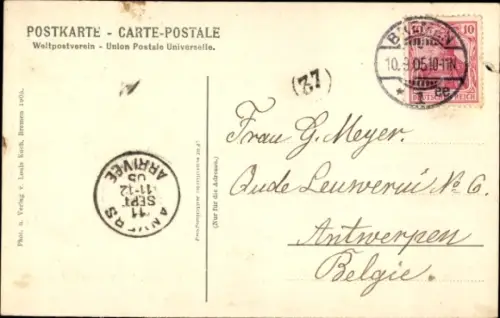 POSTKARTE - CARTE-POSTALE
Weltpostverein - Union Postale Universelle.
10
BREMEN
10.9.05.10-11N
DEUTSCHES REICH
(27)
Frau G. Meyer.
Oude Leuwerui No 6.
Antwerpen
Belgie.
ANVERS
11
SEPT
11-12
05
ARRIVÉE
(Nur für die Adresse.)
Phot. u. Verlag v. Louis Koch, Bremen 1904.